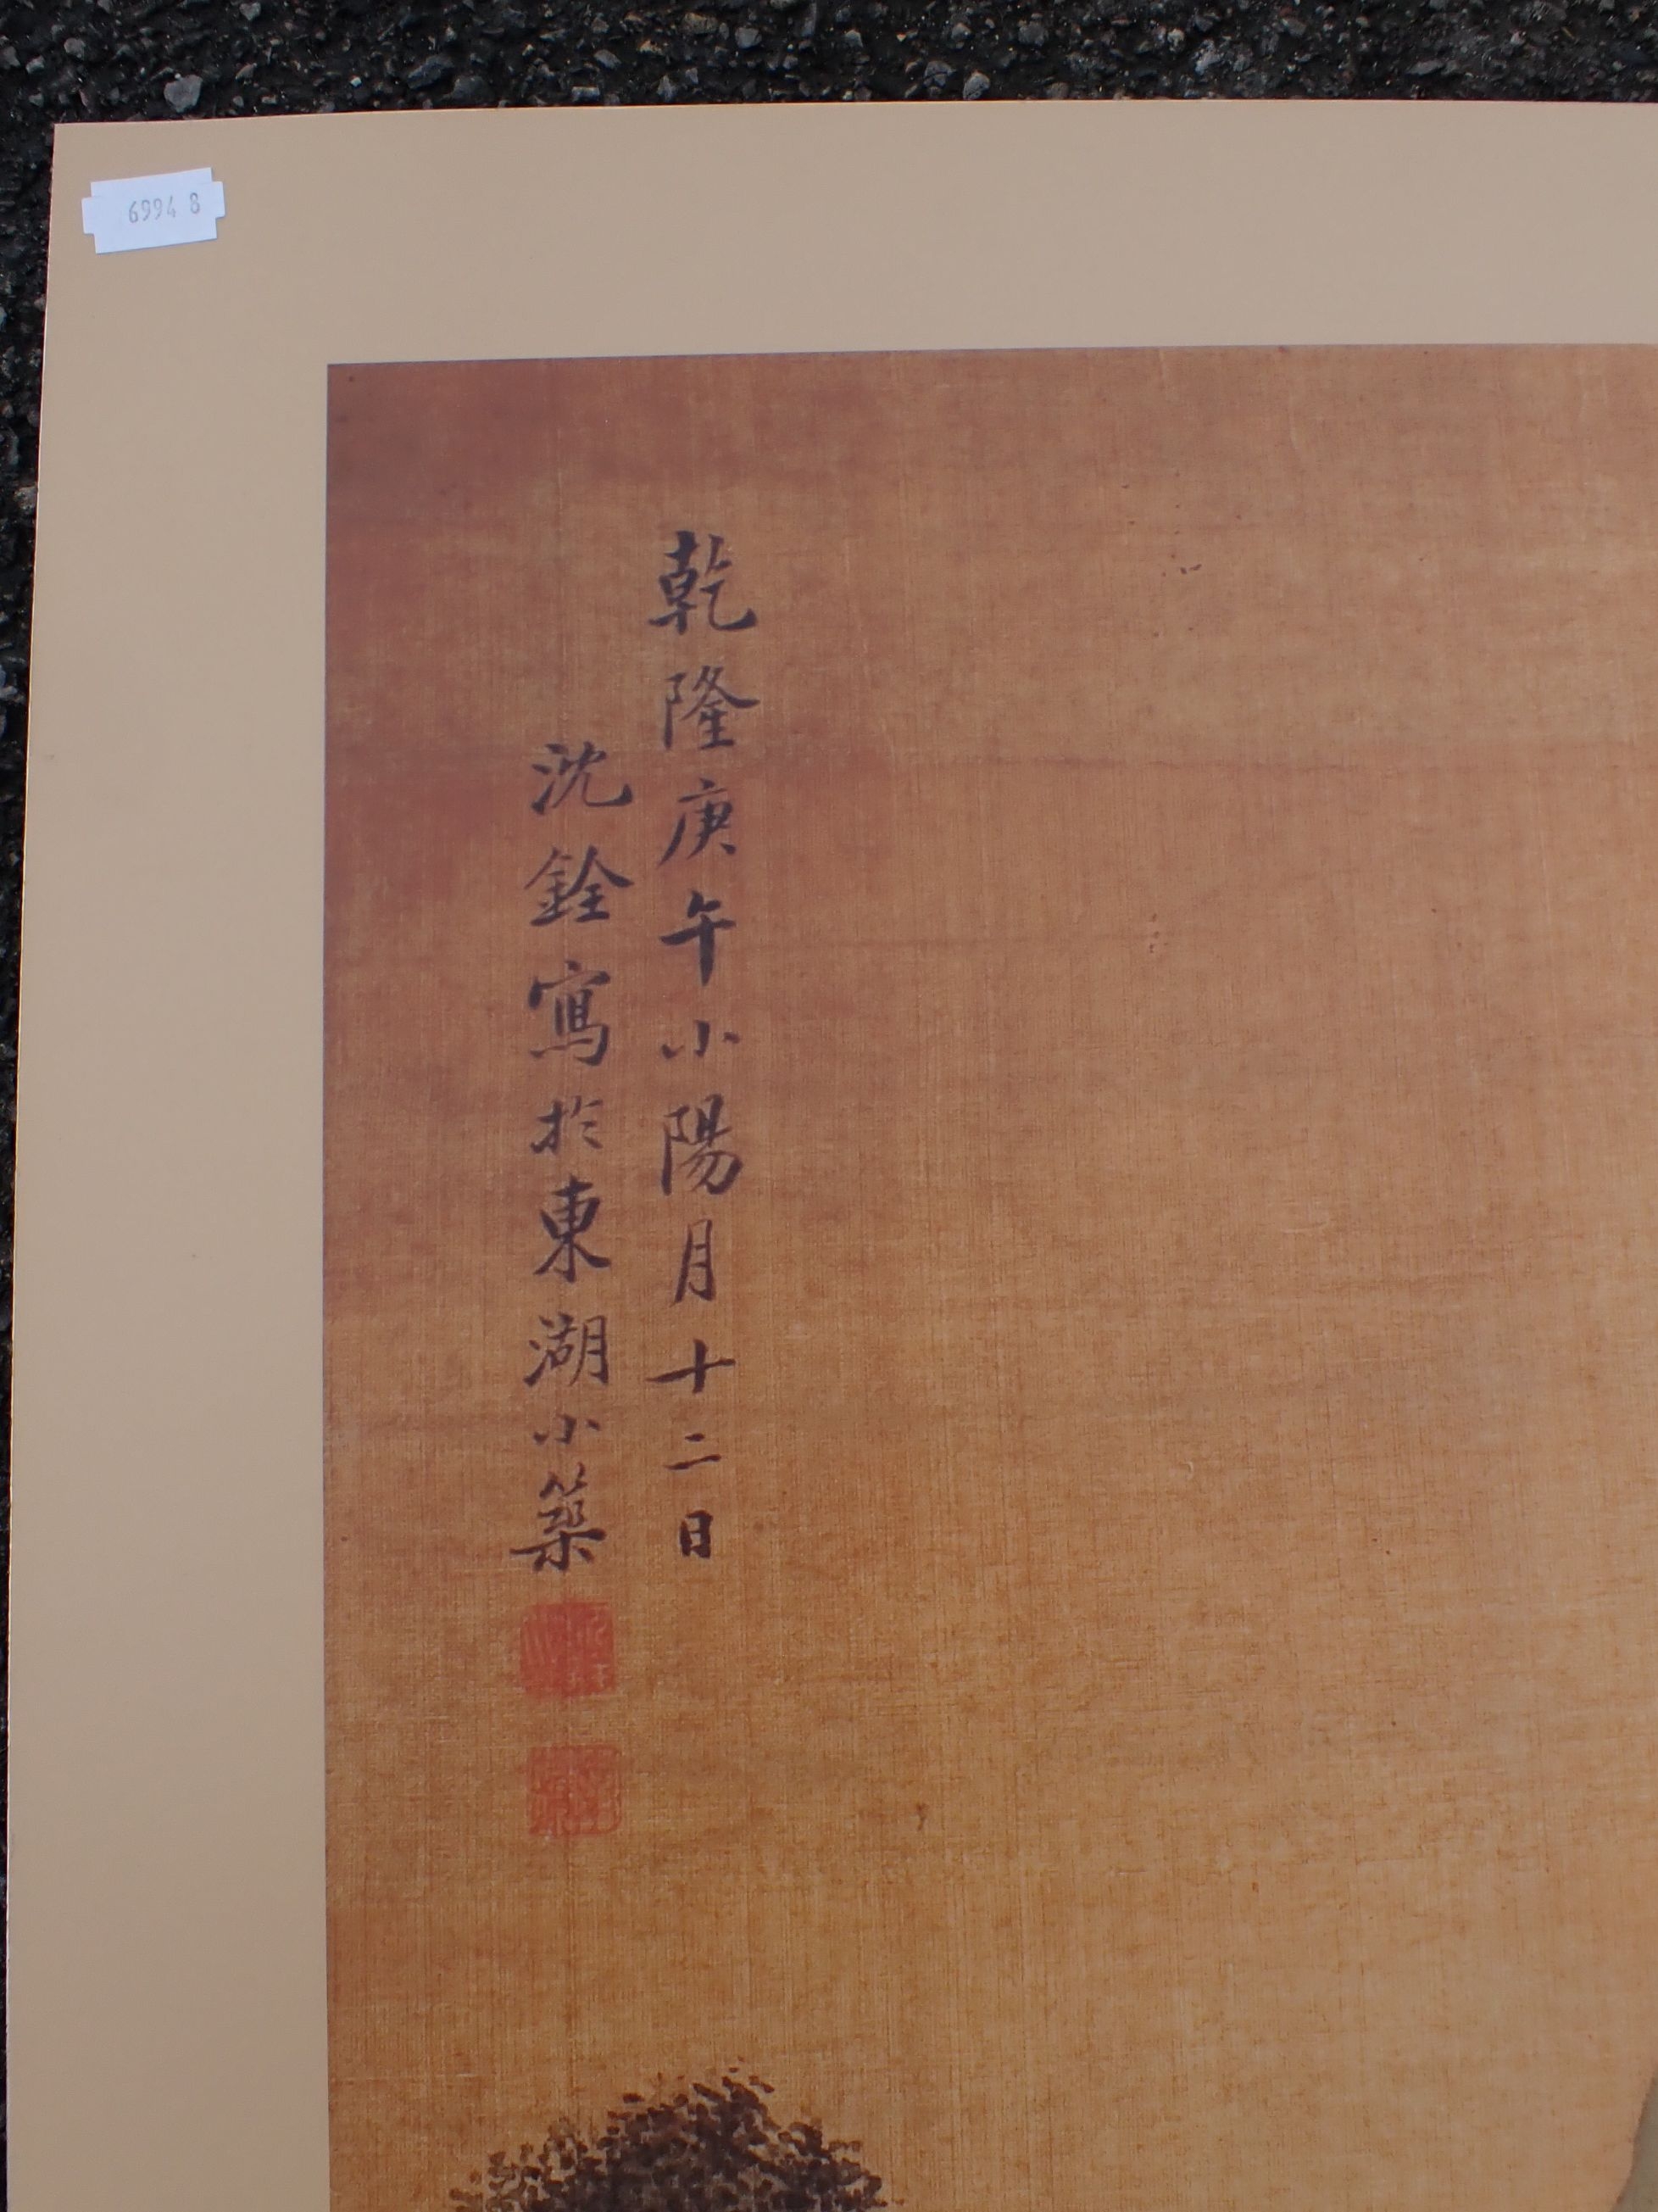 6994 8
乾隆庚午小陽月十二日
沈銓寫於東湖小築